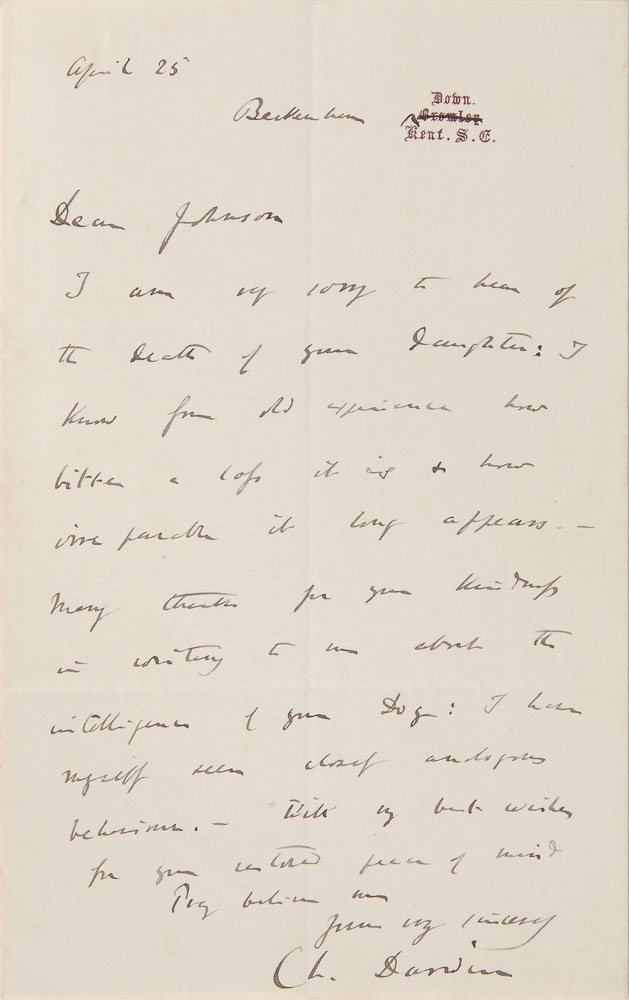 April 25
Down.
Beckenham
Bromley
Kent. S.E.
Dear Johnson
I am very sorry to hear of
the death of your daughter: I
know from old experience how
bitter a loss it is & how
irreparable it long appears. —
Many thanks for your kindness
in writing to me about the
intelligence of your Dog: I have
myself seen closely analogous
behaviour. — With my best wishes
for your restored peace of mind
Pray believe me
yours very sincerely
Ch. Darwin